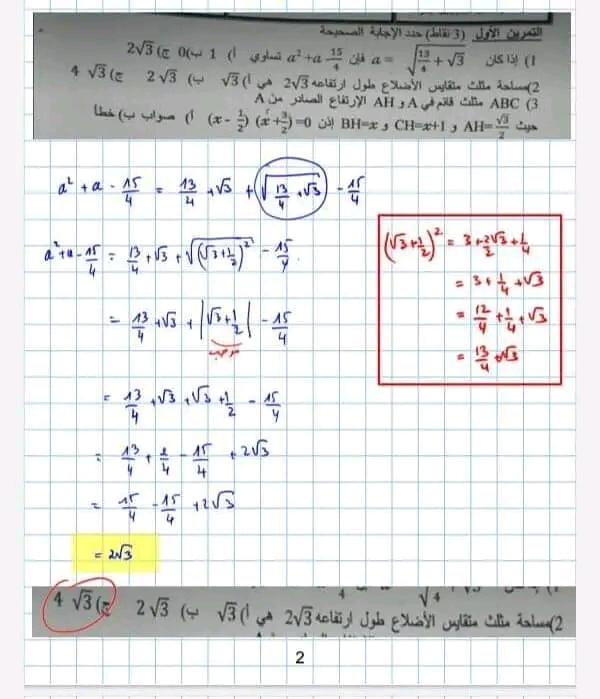 التمرين الأول (3 نقاط) حدد الإجابة الصحيحة
1) إذا كان a = √(13/4 + √3) فإن a² + a - 15/4 تساوي أ) 1 ب) 0 ج) 2√3
2) مساحة مثلث متقايس الأضلاع طول ارتفاعه 2√3 هي أ) √3 ب) 2√3 ج) 4√3
3) ABC مثلث قائم في A و AH الارتفاع الصادر من A
حيث AH = √3/2 و CH=x+1 و BH=x إذن (x - 1/2)(x + 3/2) = 0 أ) صواب ب) خطأ
a² + a - 15/4 = 13/4 + √3 + √(13/4 + √3) - 15/4
a² + a - 15/4 = 13/4 + √3 + √((√3 + 1/2)²) - 15/4
= 13/4 + √3 + |√3 + 1/2| - 15/4
موجب
= 13/4 + √3 + √3 + 1/2 - 15/4
= 13/4 + 2/4 - 15/4 + 2√3
= 15/4 - 15/4 + 2√3
= 2√3
(√3 + 1/2)² = 3 + 2√3/2 + 1/4
= 3 + 1/4 + √3
= 12/4 + 1/4 + √3
= 13/4 + √3
2) مساحة مثلث متقايس الأضلاع طول ارتفاعه 2√3 هي أ) √3 ب) 2√3 ج) 4√3
2